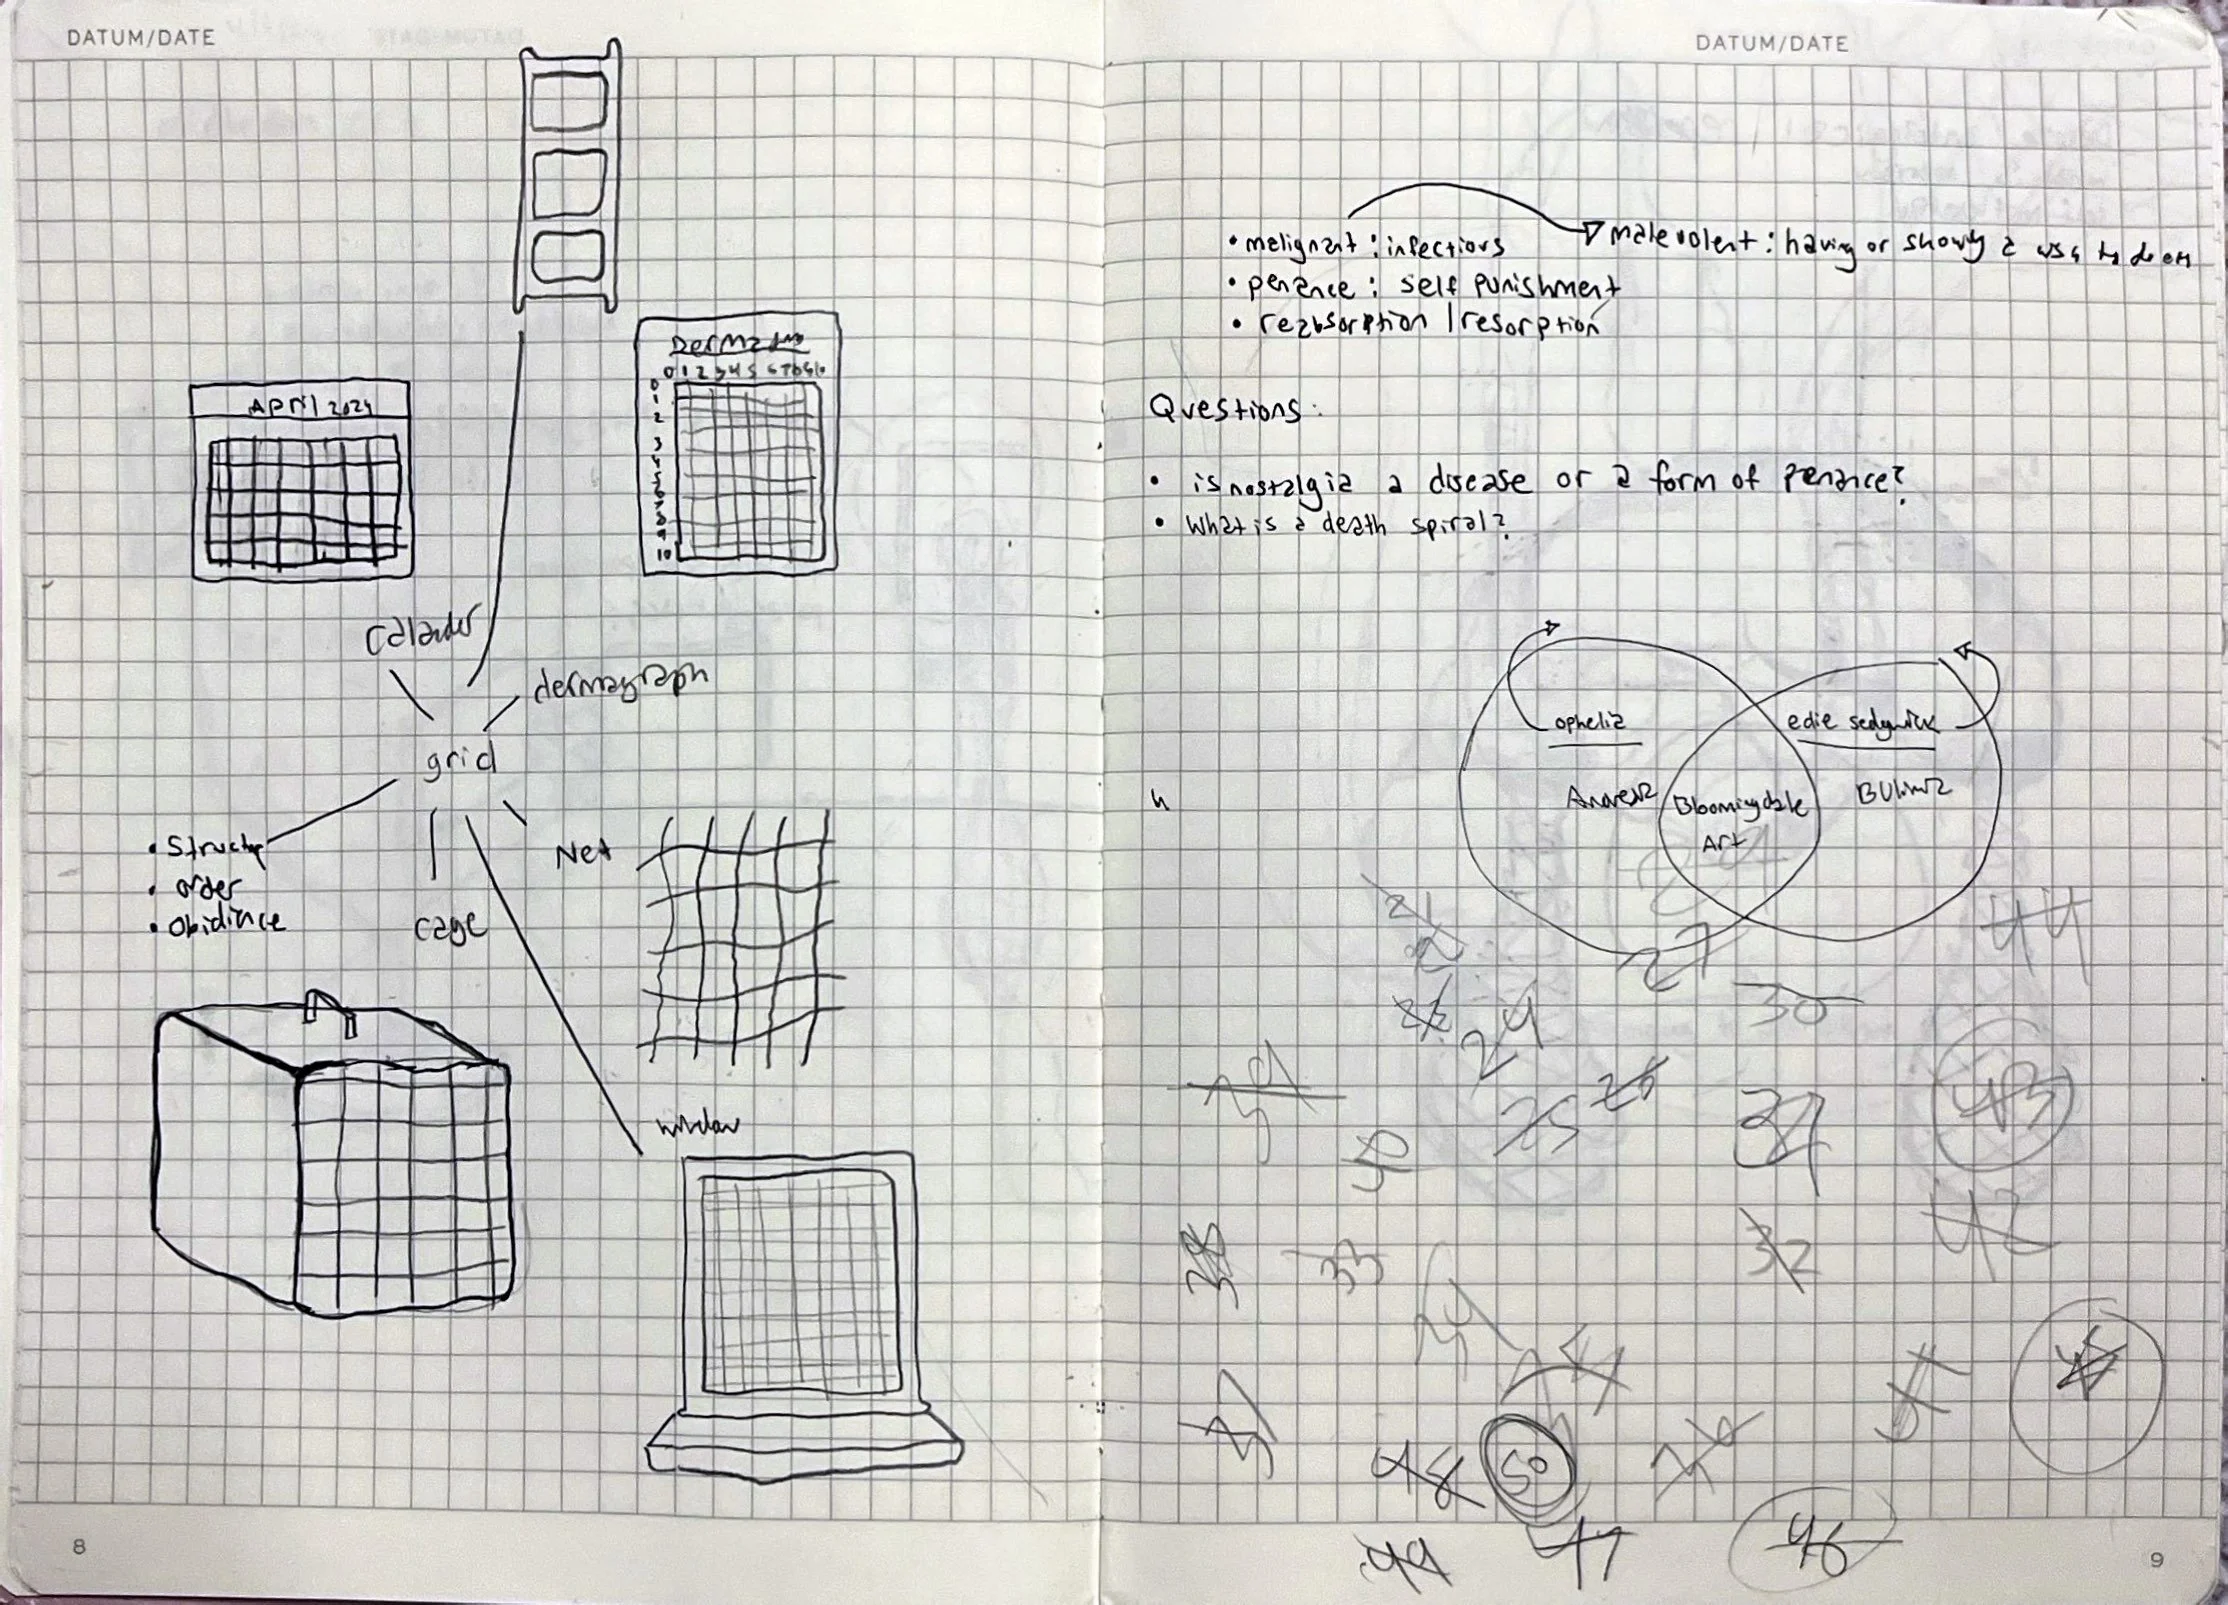 DATUM/DATE
April 2024
0 1 2 3 4 5 6 7 8 9 10
0
1
2
3
4
5
6
7
8
9
10
Calander
dermagraph
grid
• Structure
• order
• Obidince
cage
Net
window
8
DATUM/DATE
• malignant : infectiovs
malevolent : having or showing a wish to do
• penance : self punishment
• reabsorption | resorption
Questions:
• is nostalgia a disease or a form of penance?
• What is a death spiral?
ophelia
edie sedgwick
Bloomingdale
Art
27
44
30
24
43
39
25
26
40
32
42
33
38
37
48
50
36
49
47
46
9